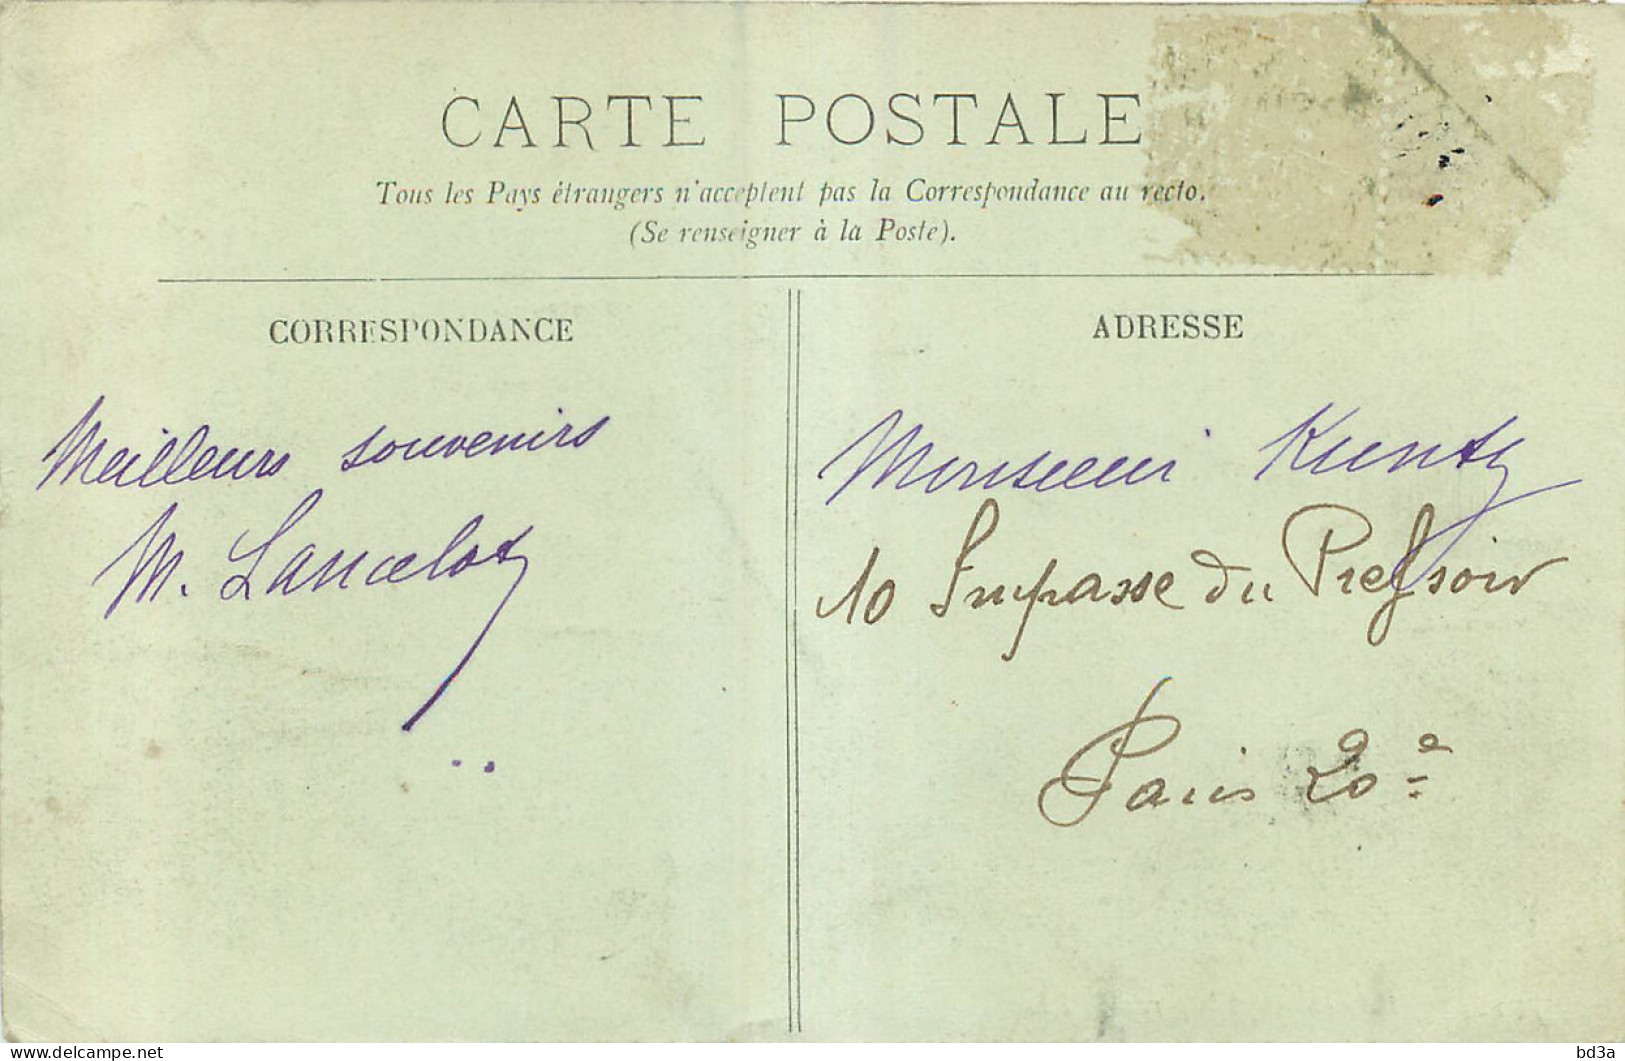 CARTE POSTALE
Tous les Pays étrangers n'acceptent pas la Correspondance au recto.
(Se renseigner à la Poste).
CORRESPONDANCE
ADRESSE
Meilleurs souvenirs
M. Lancelot
Monsieur Kuntz
10 Impasse du Pressoir
Paris 20e
delcampe.net
bd3a